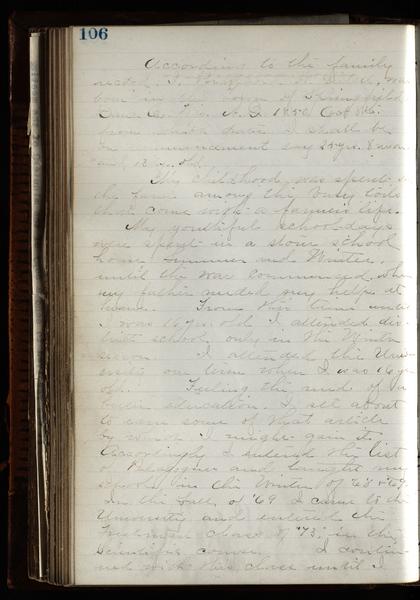 106
According to the family
record, I,
born in the town of Springfield
Dane Co. Wis. A.D. 1850 Oct 8th.
from which date I shall be
on commencement day 8 mon.
and old.
My childhood was spent on
the farm among the busy toils
that come with a farmers life.
My youthful school-days
were spent in a stone school
house Summer and Winter,
until the war commenced when
my father needed my help at
home. From this time until
I was 16 yrs old I attended dis-
trict school only in the Winter
season. I attended the Uni-
versity one term when I was 16 yrs
old. Feeling the need of a
better education, I set about
to earn some of that article
by which I might gain it.
Accordingly I entered the list
of Pedagogues and taught my
school in the Winter of '68 & '69.
In the fall of '69 I came to the
University and entered the
Freshman class of '73, in the
Scientific course. I contin-
ued with this class until I